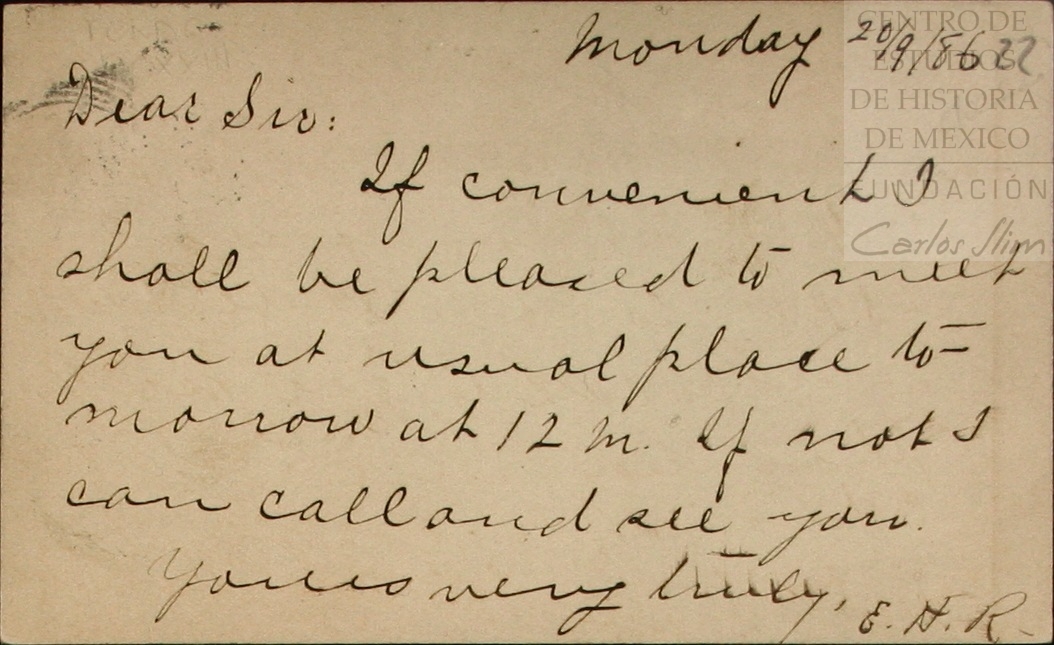 Monday 20/9/86
CENTRO DE
ESTUDIOS
DE HISTORIA
DE MEXICO
FUNDACIÓN
Carlos Slim
Dear Sir:
If convenient I
shall be pleased to meet
you at usual place to-
morrow at 12 m. If not I
can call and see you.
Yours very truly,
E. H. R.